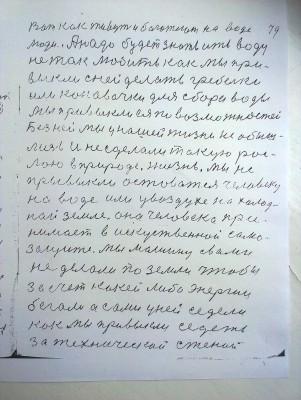 Вот как живут и богатеют на воде 79
люди. А надо будет знать ить воду
не так любить как мы при-
выкли с ней делать гребелки
или канавочки для сбора воды
мы привыкли ся по возможностей
Без ней мы у нашей жизни не
и не сделали такую рос-
лою в природе. жизнь. мы не
привыкли оставатся человеку
на воде или у воздухе на холод-
ной земле. она человека при-
нимает в искуственной само-
защите. мы машину с вами
не делали по земли чтобы
за счет какей либо энергии
бегали а сами у ней седели
как мы привыкли седеть
за технической стеной